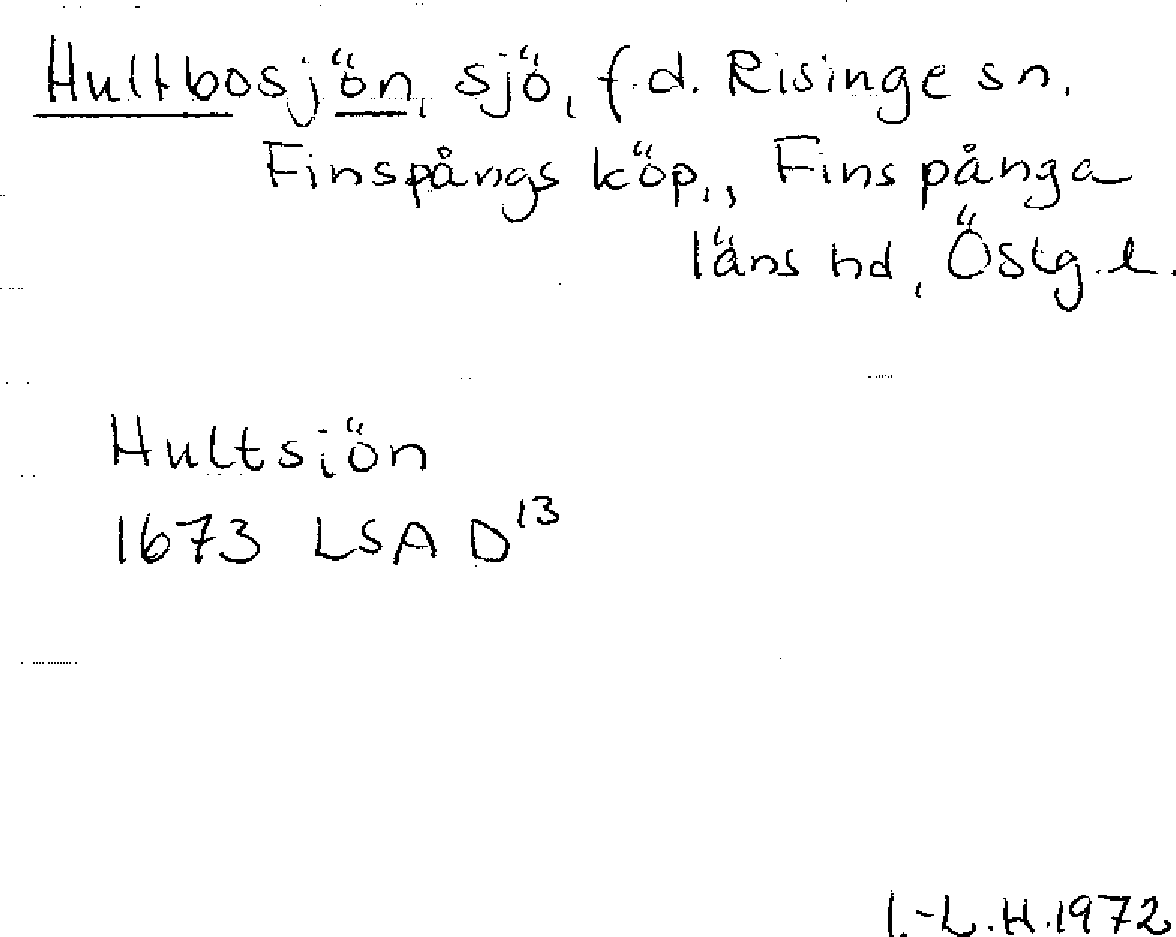 Hultbosjön, sjö, f.d. Risinge sn.
Finspångs köp., Finspånga
läns hd, Östg.l.
Hultsiön
1673 LSA D¹³
I.-L.H.1972